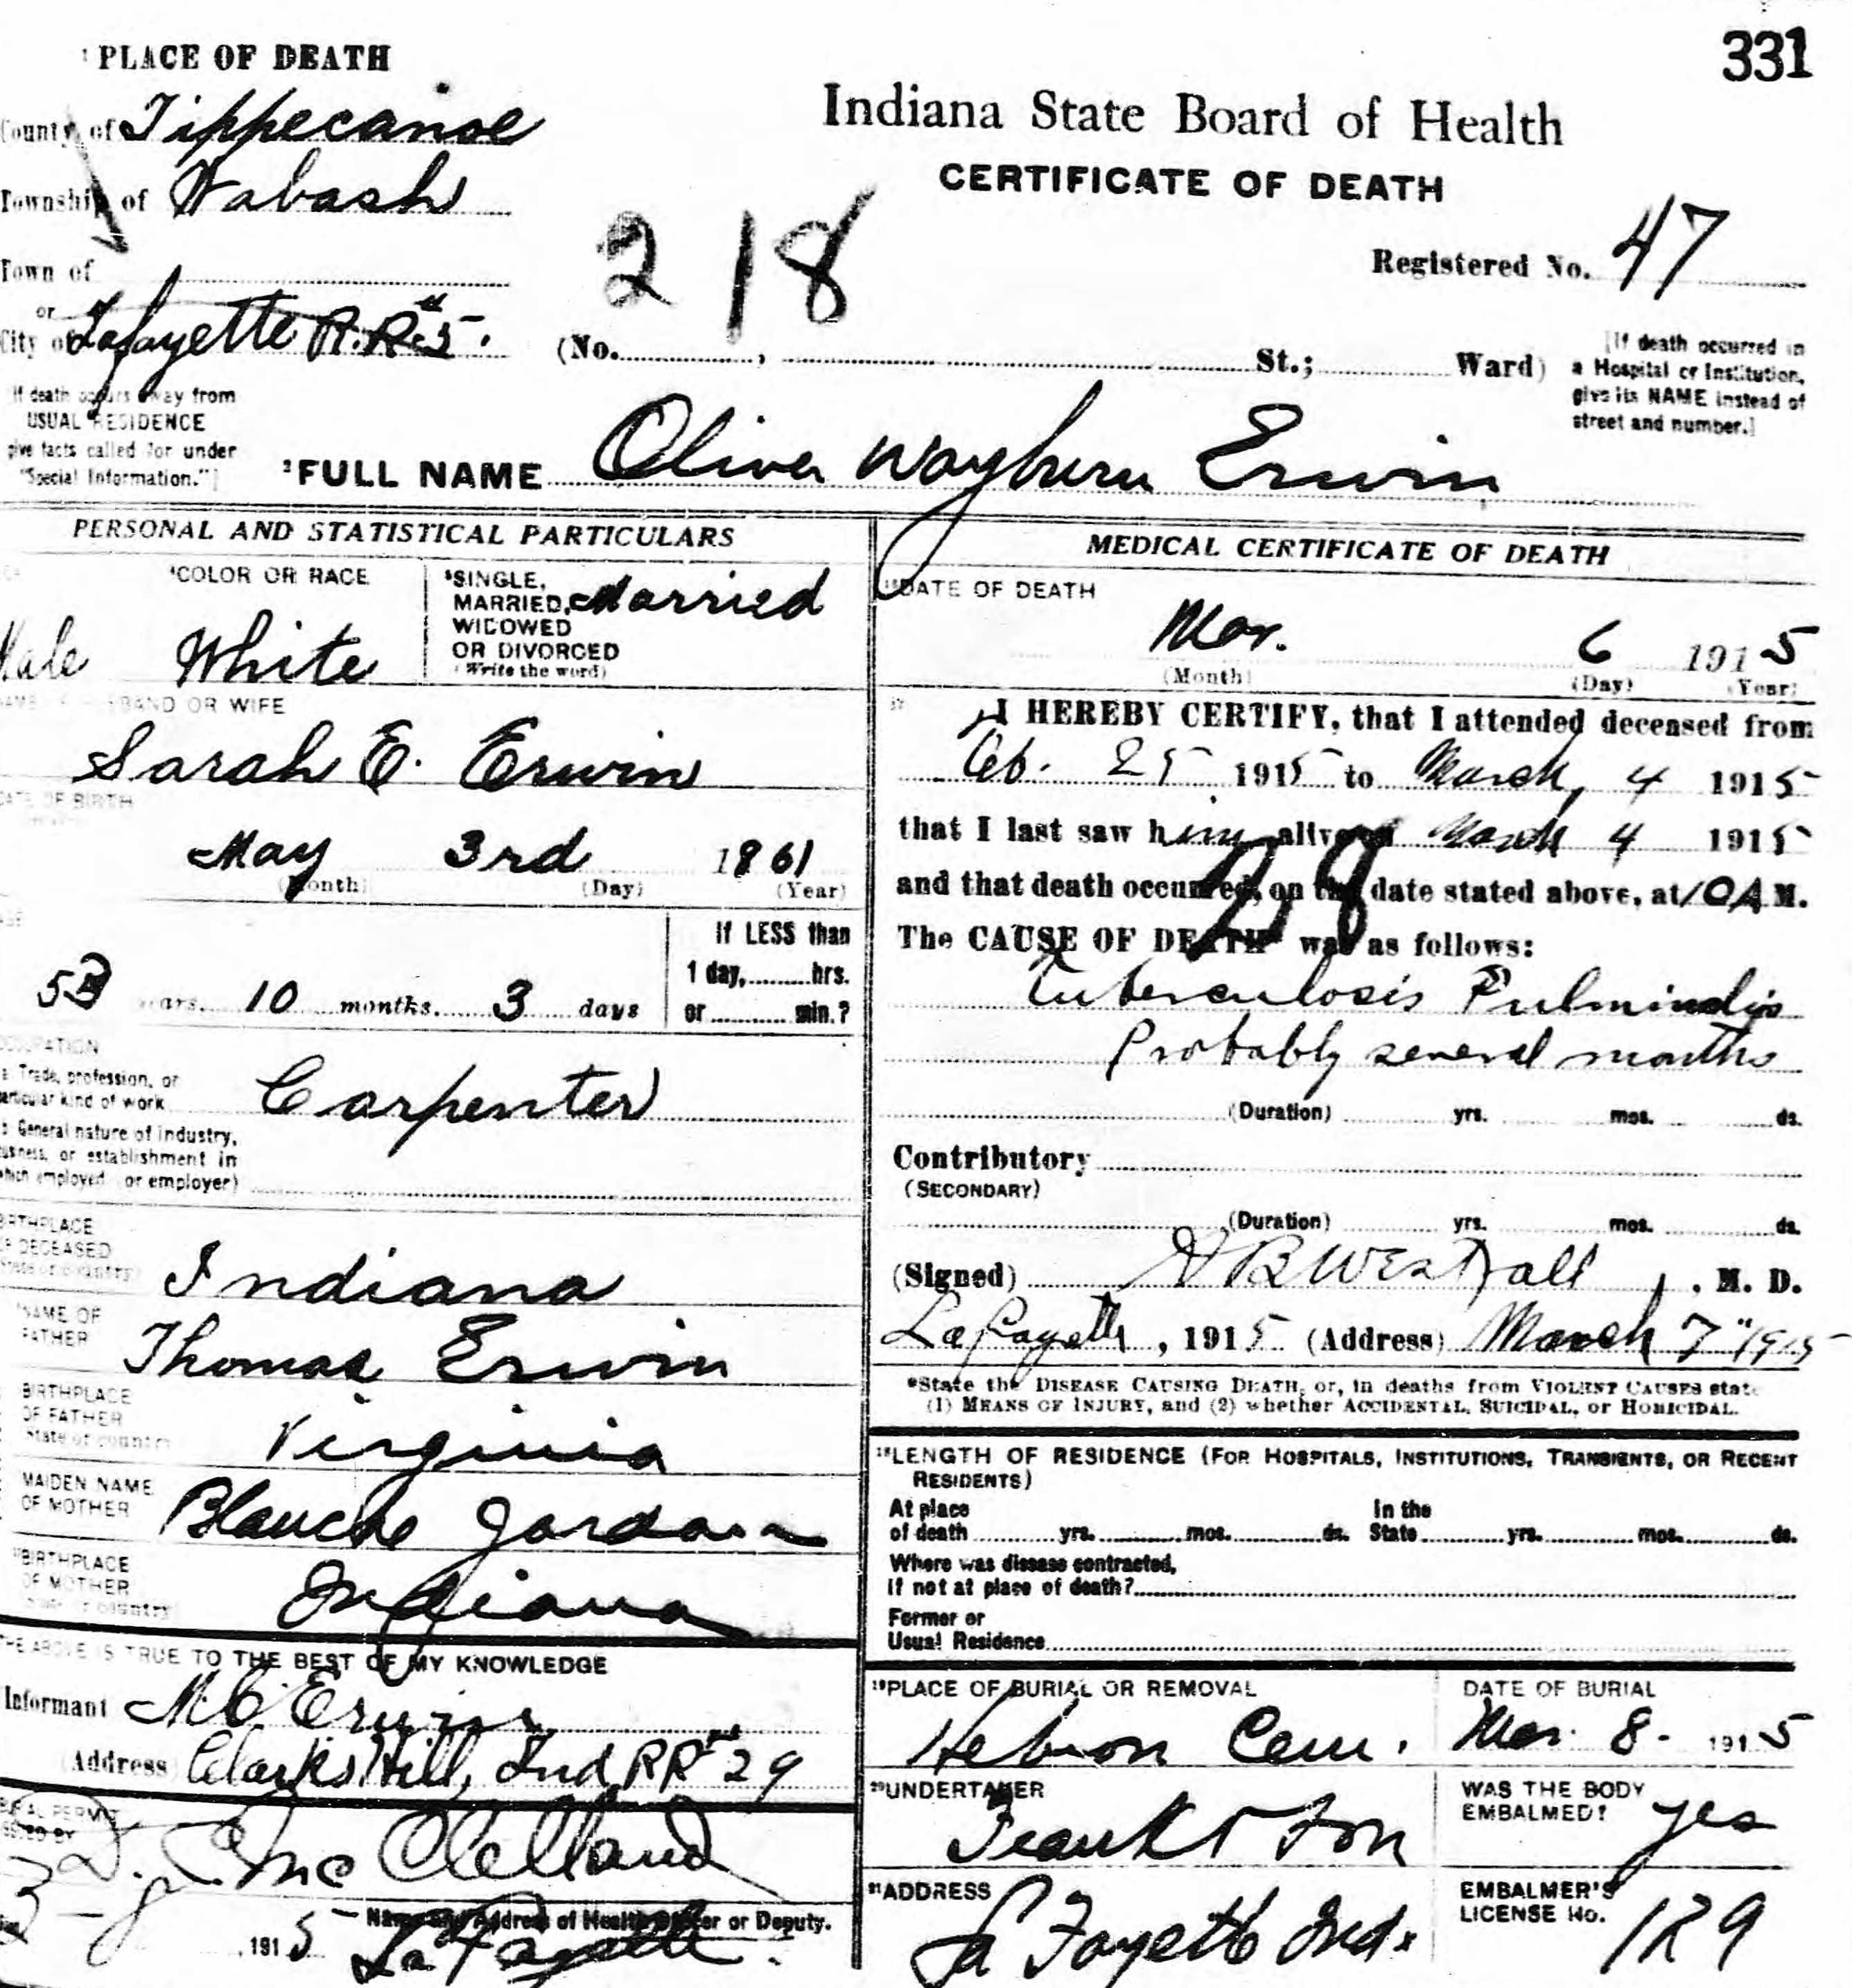 331
¹PLACE OF DEATH
Indiana State Board of Health
CERTIFICATE OF DEATH
County of Tippecanoe
Township of Wabash
218
Registered No. 47
Town of
or
City of Lafayette R.R. #5.
(No. , St.; Ward)
[If death occurred in
a Hospital or Institution,
give its NAME instead of
street and number.]
If death occurs away from
USUAL RESIDENCE
give facts called for under
"Special Information."]
²FULL NAME Oliver Wayburn Erwin
PERSONAL AND STATISTICAL PARTICULARS
⁴COLOR OR RACE
⁵SINGLE,
MARRIED, Married
WIDOWED
OR DIVORCED
(Write the word)
Male White
HUSBAND OR WIFE
Sarah E. Erwin
DATE OF BIRTH
May 3rd 1861
(Month) (Day) (Year)
AGE
53 years. 10 months. 3 days
If LESS than
1 day, hrs.
or min.?
OCCUPATION
a Trade, profession, or
particular kind of work Carpenter
General nature of industry,
business, or establishment in
which employed or employer)
BIRTHPLACE
OF DECEASED
State or country) Indiana
NAME OF
FATHER Thomas Erwin
BIRTHPLACE
OF FATHER
State or country Virginia
MAIDEN NAME
OF MOTHER Blanche Jordan
BIRTHPLACE
OF MOTHER
State or country) Indiana
THE ABOVE IS TRUE TO THE BEST OF MY KNOWLEDGE
Informant M C Erwin
(Address) Clarks Hill, Ind RR # 29
BURIAL PERMIT
ISSUED BY
Mc Clelland
3-8 1915
Name and Address of Health Officer or Deputy.
La Fayette.
MEDICAL CERTIFICATE OF DEATH
¹⁶DATE OF DEATH
Mar. 6 1915
(Month) (Day) (Year)
17 I HEREBY CERTIFY, that I attended deceased from
Feb. 25 1915 to March, 4 1915
that I last saw him alive on March 4 1915
and that death occurred, on the date stated above, at 10 A M.
28
The CAUSE OF DEATH* was as follows:
Tuberculosis
Probably several months
(Duration) yrs. mos. ds.
Contributory
(SECONDARY)
(Duration) yrs. mos. ds.
(Signed) Westfall, M. D.
LaFayette, 1915 (Address) March 7" 1915
*State the DISEASE CAUSING DEATH, or, in deaths from VIOLENT CAUSES state
(1) MEANS OF INJURY, and (2) whether ACCIDENTAL, SUICIDAL, or HOMICIDAL.
¹⁸LENGTH OF RESIDENCE (FOR HOSPITALS, INSTITUTIONS, TRANSIENTS, OR RECENT
RESIDENTS)
At place In the
of death yrs. mos. ds. State yrs. mos. ds.
Where was disease contracted,
if not at place of death?
Former or
Usual Residence
¹⁹PLACE OF BURIAL OR REMOVAL
Hebron Cem.
DATE OF BURIAL
Mar. 8 - 1915
²⁰UNDERTAKER
Son
WAS THE BODY
EMBALMED? yes
²¹ADDRESS
La Fayette Ind.
EMBALMER'S
LICENSE No. 129